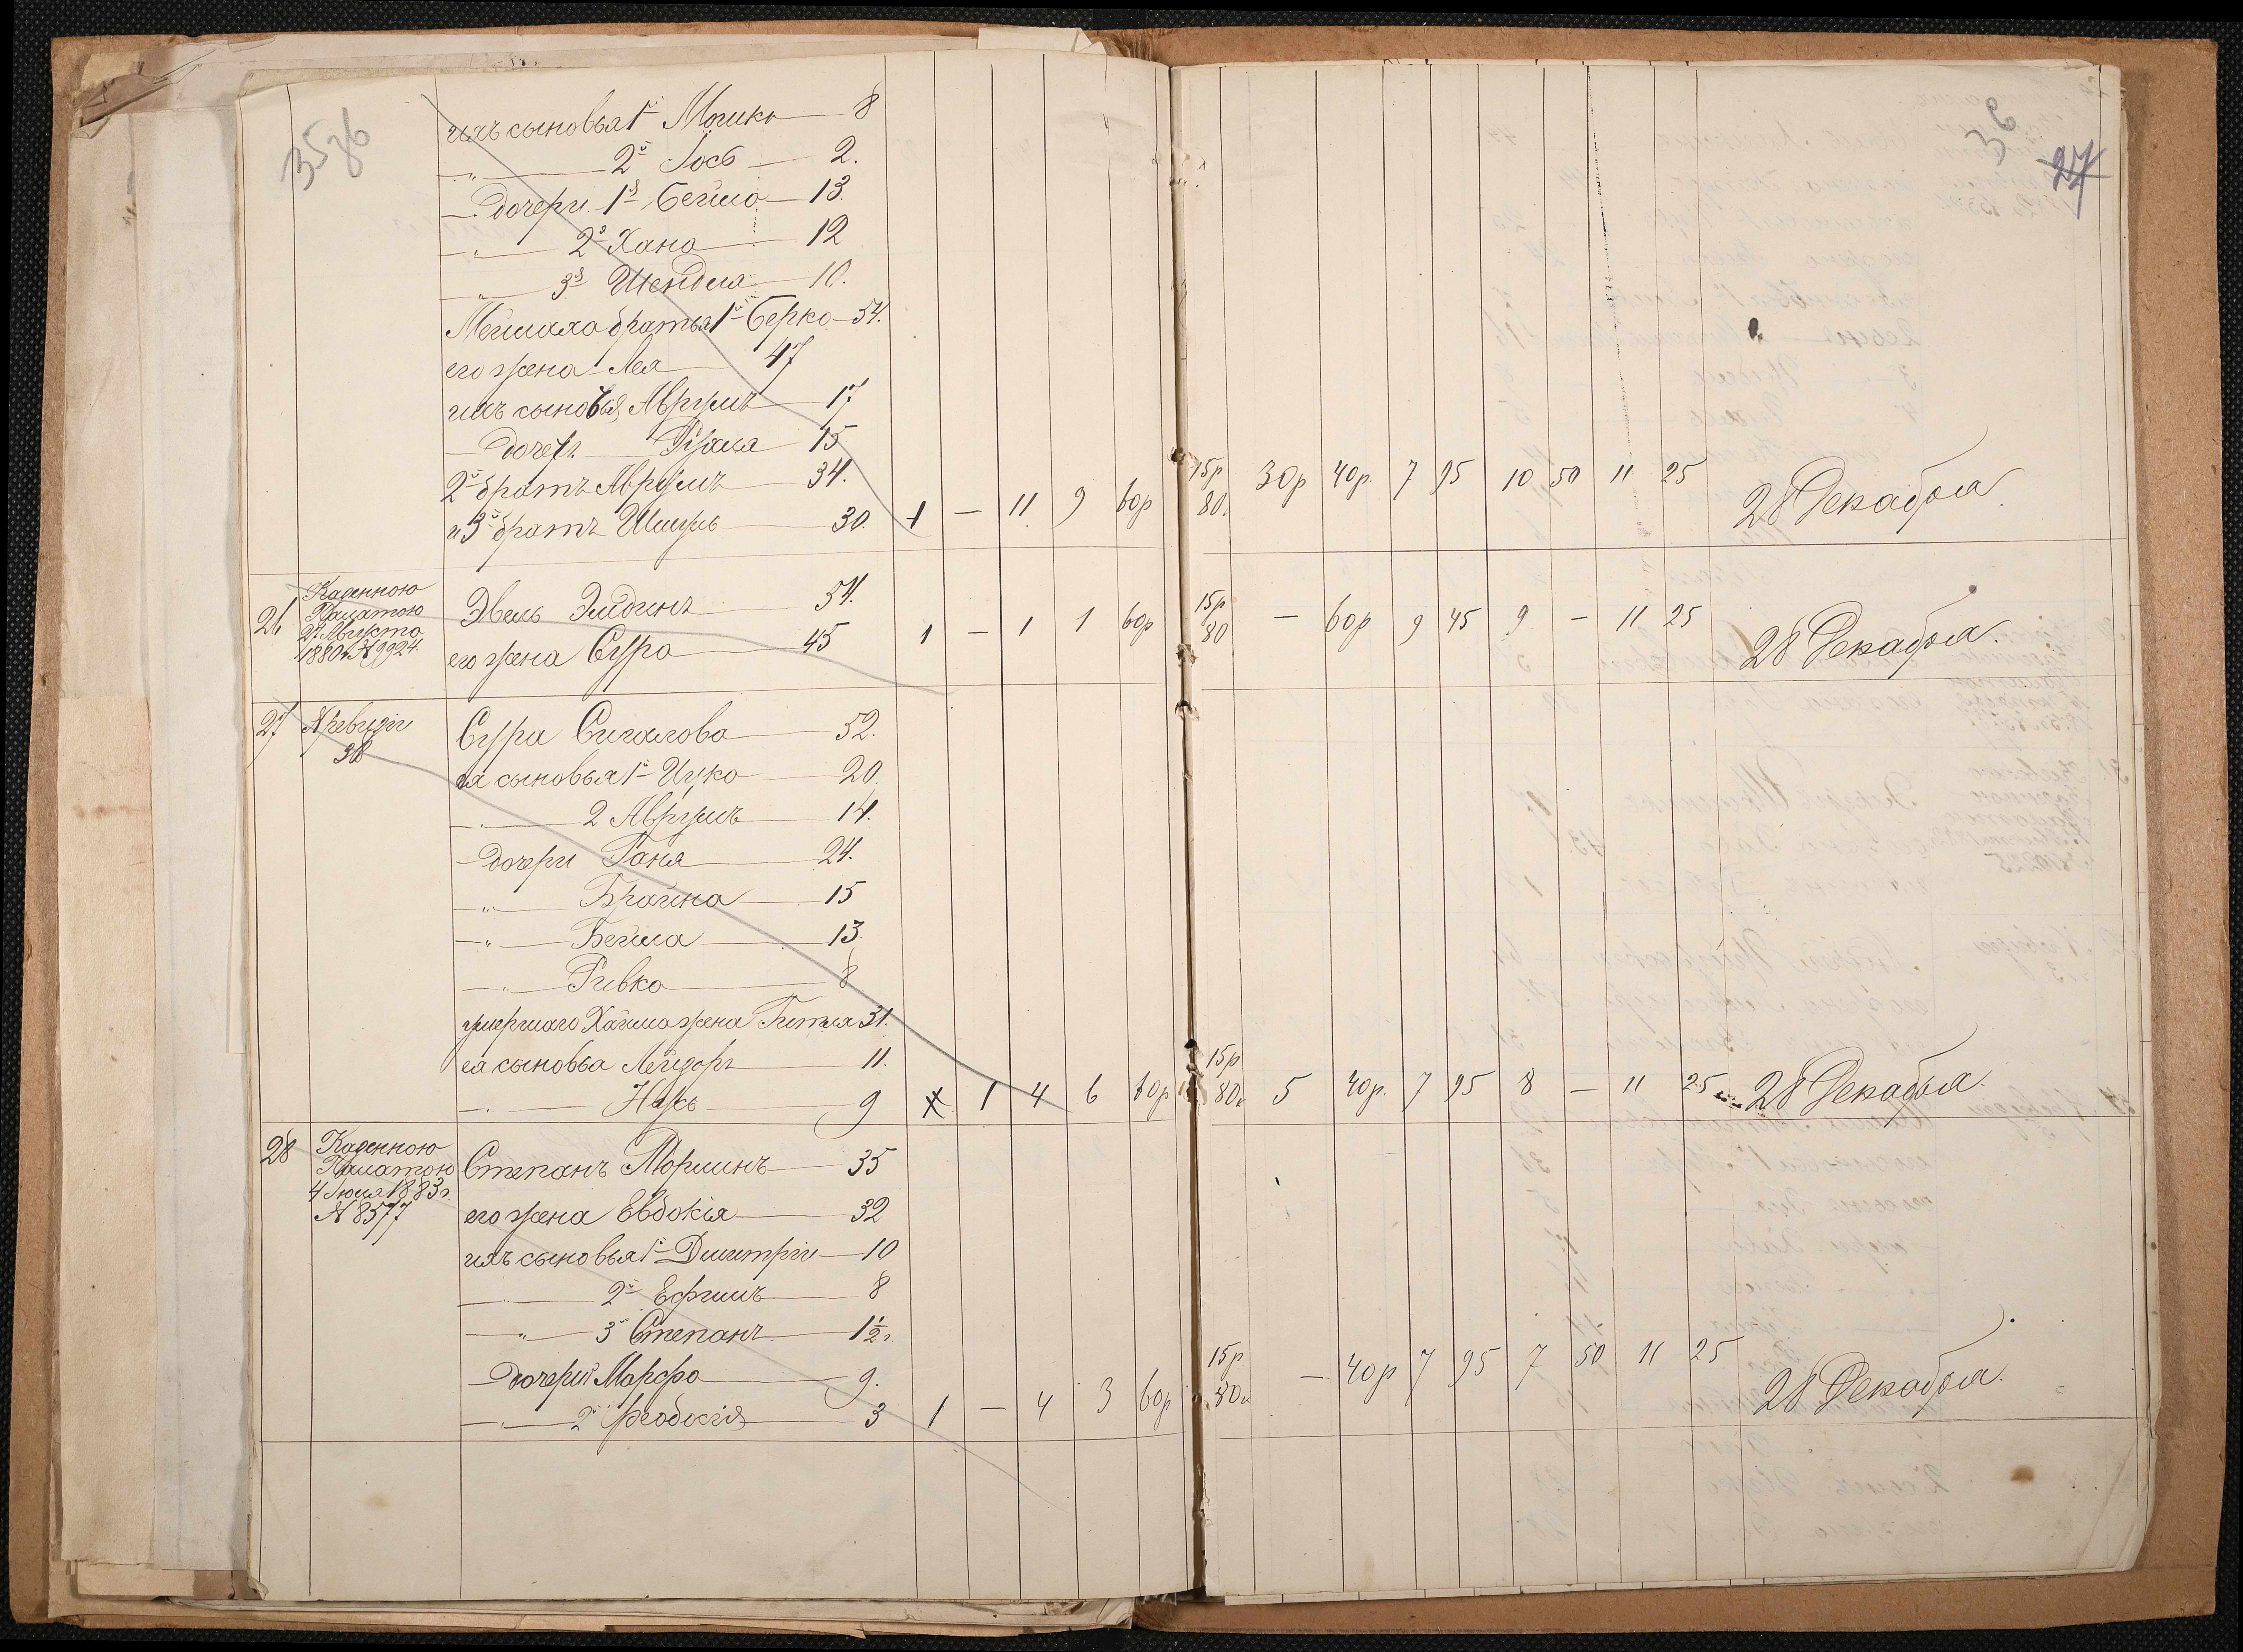 35зв
36
27
ихъ сыновья 1й Мошко — 8
— „ — 2й Іось — 2.
— дочери 1я Бейла — 13.
— „ — 2я Хана — 12
— „ — 3я Шендля — 10.
братья 1й Берко — 54.
его жена Лея — 47
ихъ сыновья Аврумъ — 17
— дочерь — 15
2й братъ Аврумъ — 34.
и 3й братъ — 30. 1 — 11 9 60р 15р 80. 30р 40р. 7 95 10 50 11 25 28 Декабря.
26 Казенною
Палатою
27 Августа
1880 г. № 9924.
Эвель — 54.
его жена Сура — 45 1 — 1 1 60р 15р 80 — 60р 9 45 9 — 11 25 28 Декабря.
27 № ревизіи
38
Сура Сигалова — 52.
ея сыновья 1й Ицко — 20.
— „ — 2 Аврумъ — 14.
— дочери Ганя — 24.
— „ — Брайна — 15
— „ — Бейла — 13.
— „ — Ривка — 8
умершаго Хаима жена Гитля 31.
ея сыновья — 11.
— „ — — 9 1 4 6 60р 15р 80к 5 40р. 7 95 8 — 11 25 28 Декабря.
28 Казенною
Палатою
4 Іюля 1883 г.
№ 8577
Степанъ — 35
его жена Евдокія — 32
ихъ сыновья 1й Дмитрій — 10
— „ — 2й Ефимъ — 8
— „ — 3й Степанъ — 1½ г.
— дочери 1я Марфа — 9.
— „ — 2я Феодосія — 3 1 — 4 3 60р 15р 80к — 40р 7 95 7 50 11 25 28 Декабря.